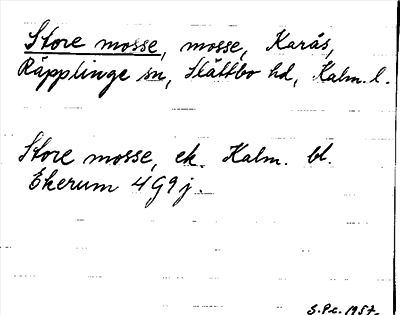 Store mosse, mosse, Karås,
Räpplinge sn, Slättbo hd, Kalm. l.
Store mosse, ek. Kalm. bl.
Ekerum 4G9j.
S.Pe. 1957.